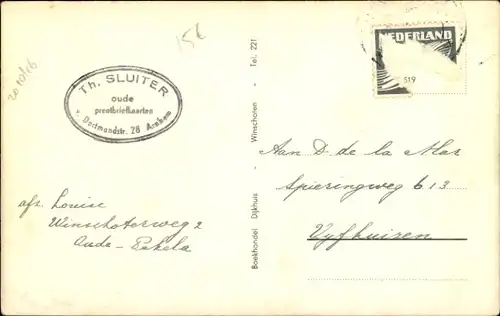 2010/26
15L
NEDERLAND
519
Th. SLUITER
oude
prentbriefkaarten
Dortmondstr. 28 Arnhem
Boekhandel Dijkhuis - Winschoten - Tel. 221
Aan D. de la Mar
Spieringweg 613
Vyfhuizen
afz. Louise
Winschoterweg 2
Oude-Pekela